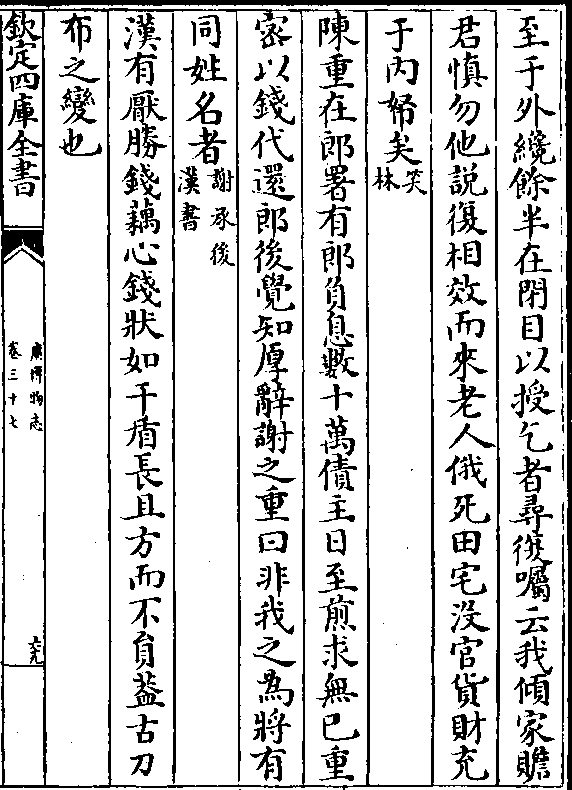 至于外纔餘半在閉目以授乞者尋復囑云我傾家贍
君慎勿他説復相效而來老人俄死田宅沒官貨財充
于内帑矣笑林
陳重在郎署有郎負息數十萬債主日至煎求無已重
宻以錢代還郎後覺知厚辭謝之重曰非我之為將有
同姓名者謝承後漢書
漢有厭勝錢藕心錢狀如干盾長且方而不負葢古刀
布之變也
欽定四庫全書
廣博物志
卷三十七
六九